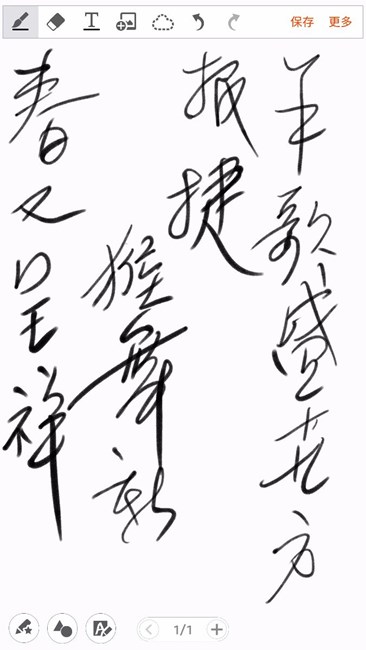 保存 更多
羊歌盛世方
报捷
猴舞新
春又呈祥
1/1